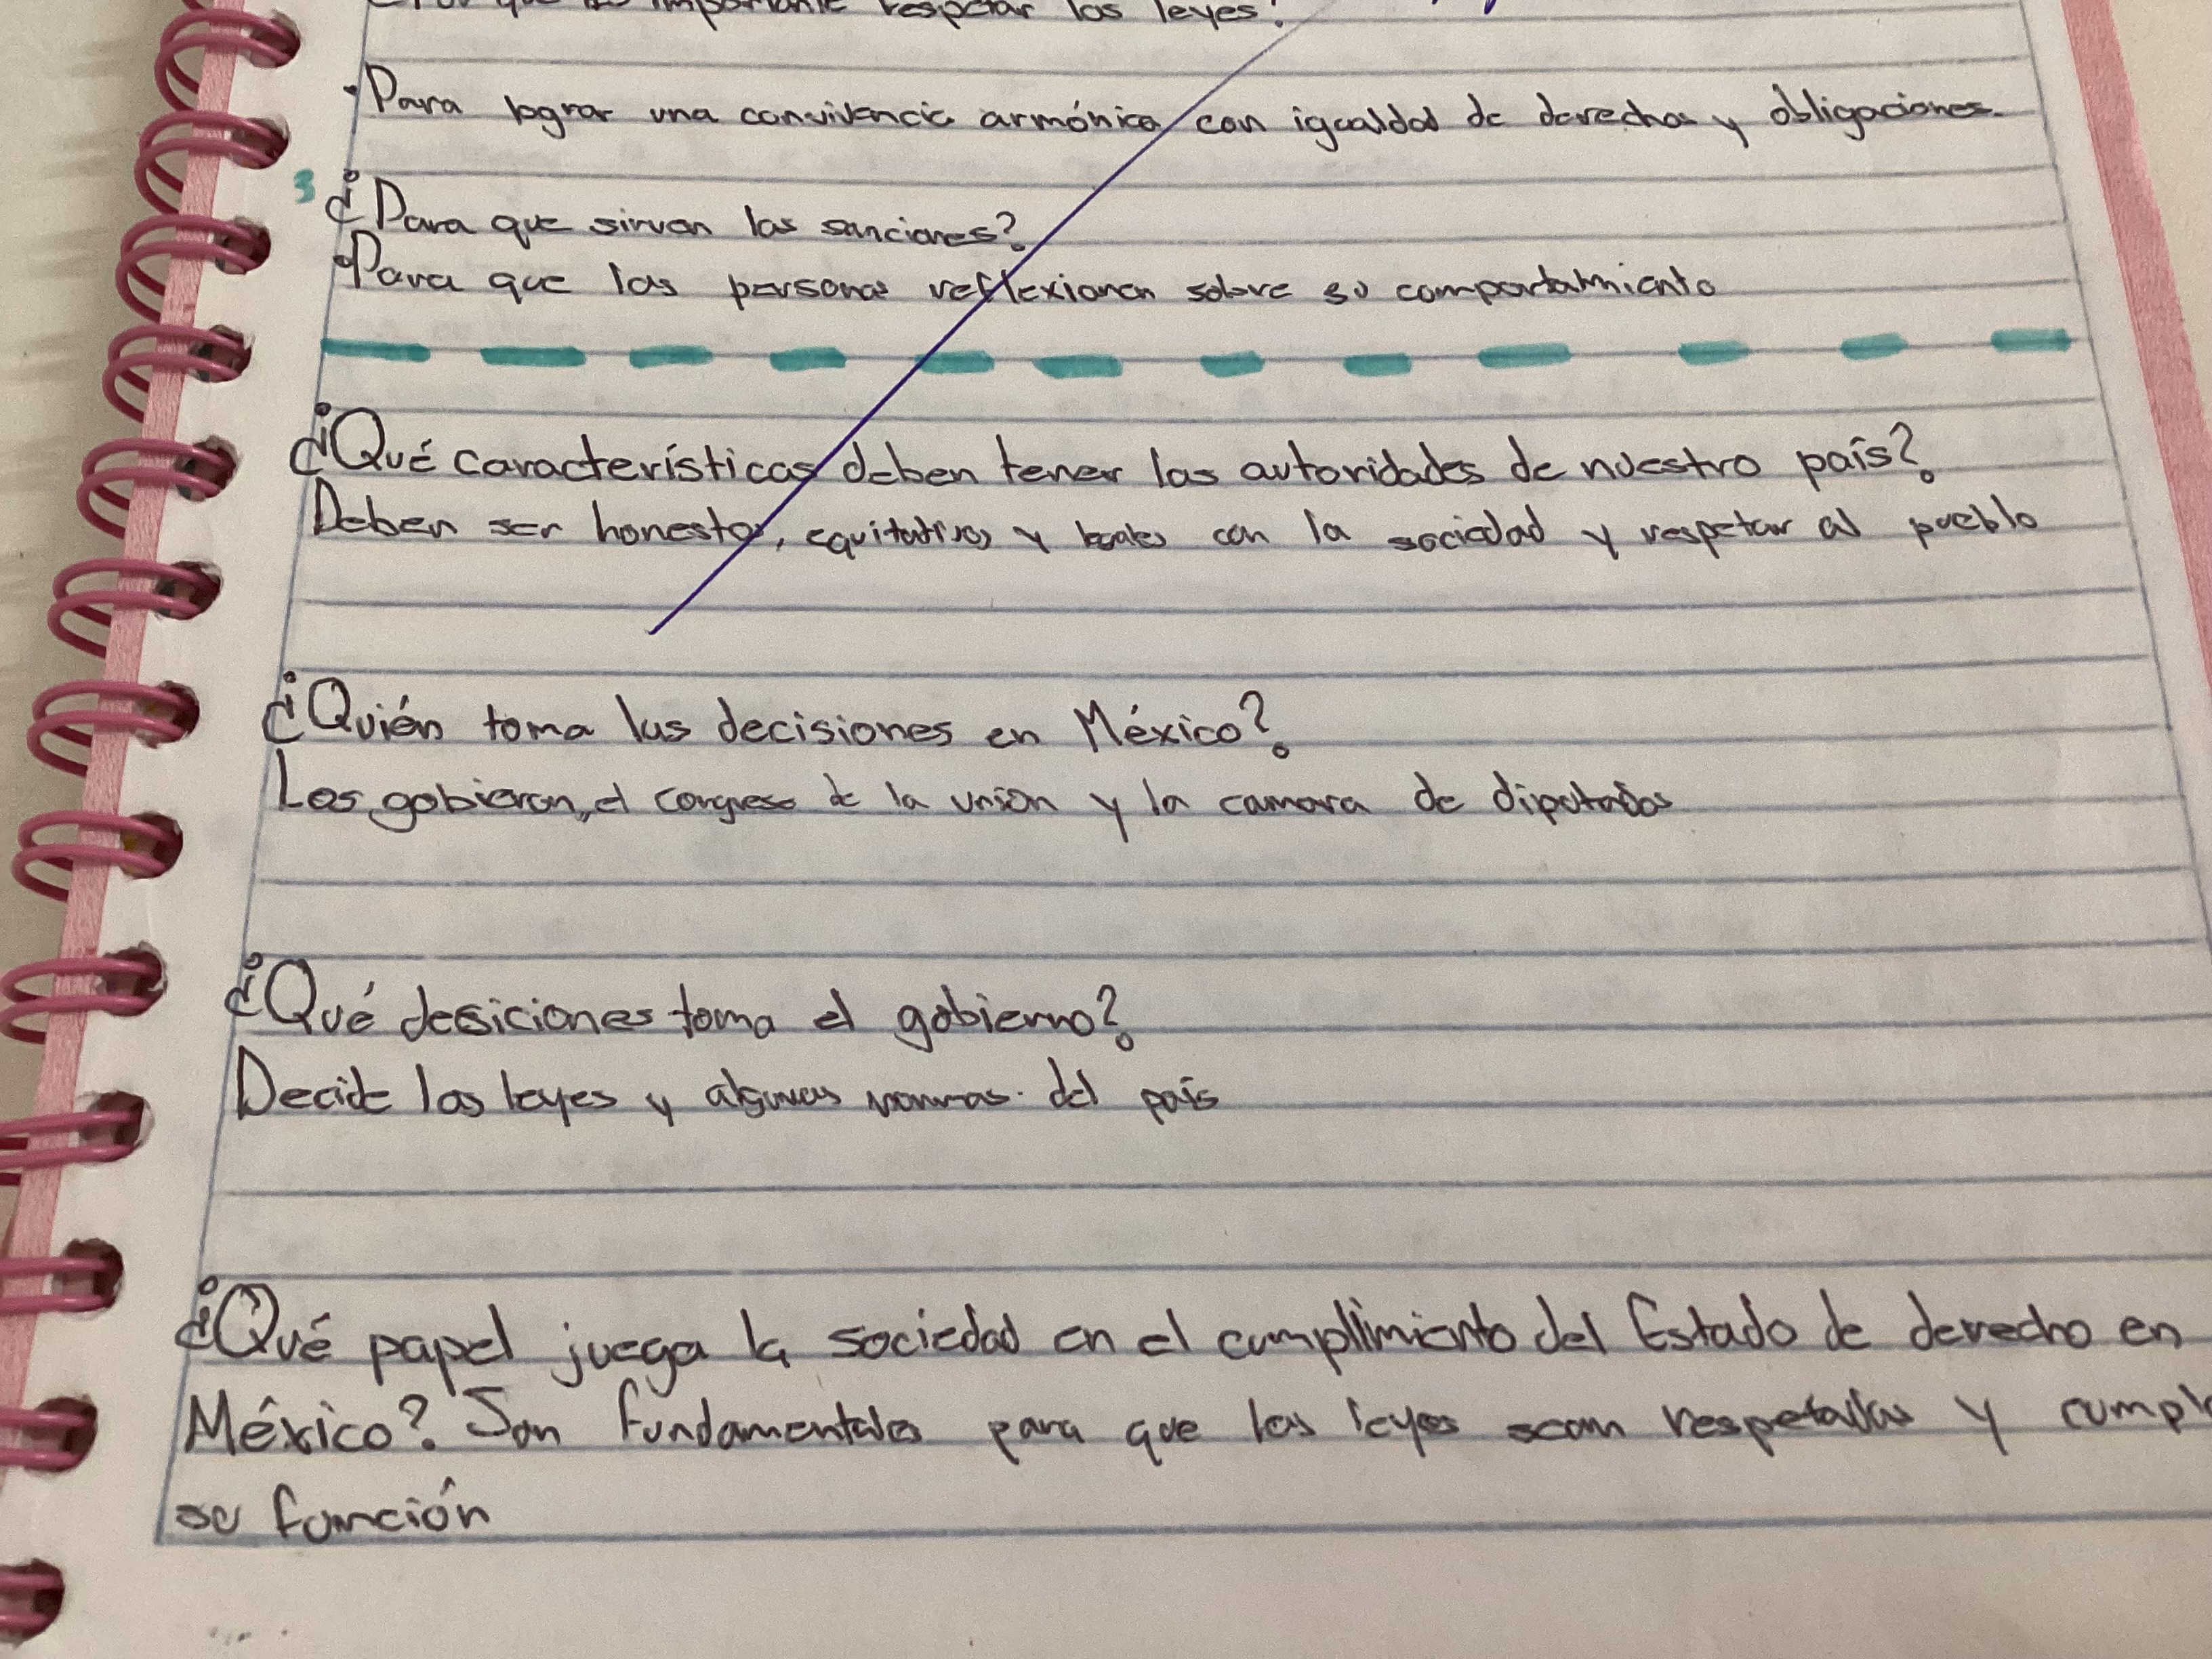 ¿Por que es importante respetar las leyes?
•Para lograr una convivencia armónica con igualdad de derechos y obligaciones.
3 ¿Para que sirven las sanciones?
•Para que las personas reflexionen sobre su comportatmiento
¿Qué características deben tener las autoridades de nuestro país?
Deben ser honestos, equitativos y leales con la sociedad y respetar al pueblo
¿Quién toma las decisiones en México?
Los gobieron, el congreso de la unión y la camara de diputados
¿Qué desiciones toma el gobierno?
Decide las leyes y algunas normas del país
¿Qué papel juega la sociedad en el cumplimiento del Estado de derecho en
México? Son fundamentales para que las leyes sean respetadas y
su función